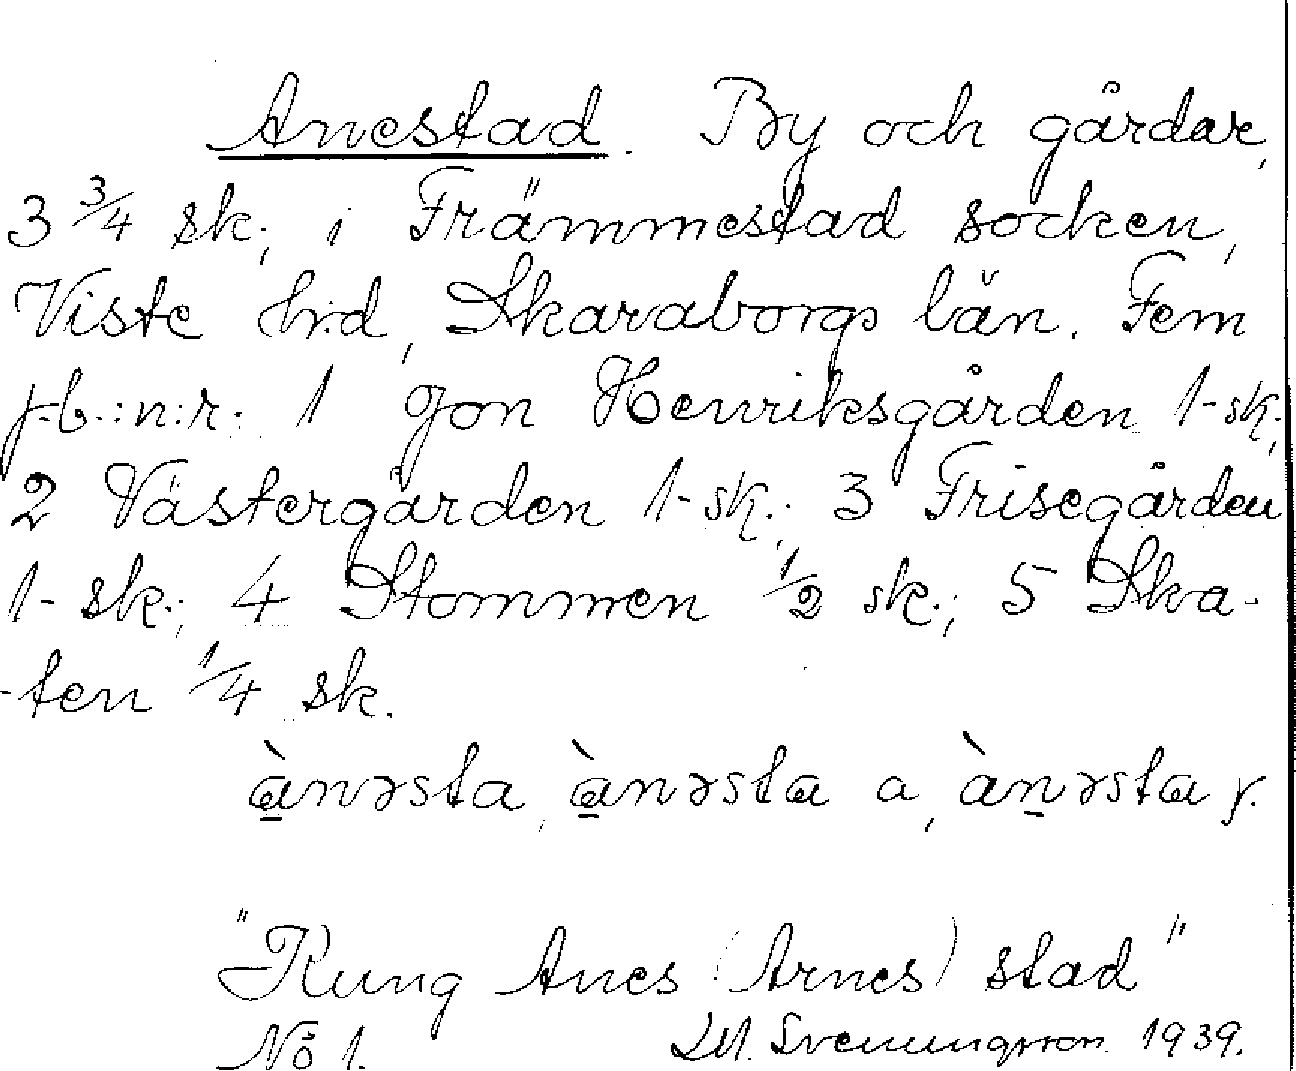 Anestad. By och gårdar,
3 3/4 sk., i Främmestad socken,
Viste hrd, Skaraborgs län. Fem
j.b.:n:r. 1 Jon Henriksgården 1- sk.;
2 Västergården 1- sk.; 3 Frisegården
1- sk.; 4 Stommen 1/2 sk.; 5 Ska-
-ten 1/4 sk.
ànəsta, ànəsta a, ànəsta y.
"Kung Anes (Arnes) stad"
No 1. Svenungsson 1939.